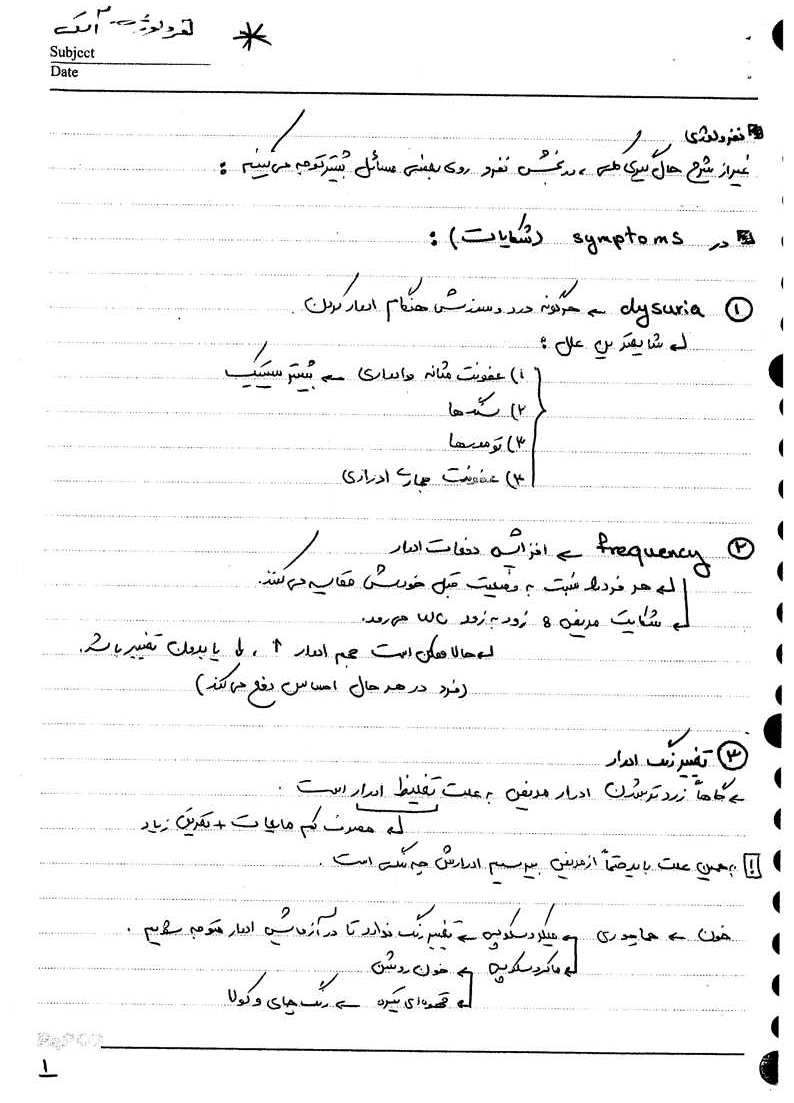 نفرولوژی - آسک
Subject
Date
نفرولوژی
غیر از شرح حال گیری کلی، در بخش نفرو روی بعضی مسائل بیشتر توجه می‌کنیم :
در symptoms (شکایات) :
① dysuria ← هرگونه درد و سوزش هنگام ادرار کردن.
شایعترین علل :
۱) عفونت مثانه وادراری ← بیشتر سیستیک
۲) سنگها
۳) تومورها
۳) عفونت مجاری ادراری
② frequency ← افزایش دفعات ادرار
هر فرد را نسبت به وضعیت قبل خودش مقایسه می‌کنند.
شکایت مریض : زود به زود WC می‌رود.
حالا ممکن است حجم ادرار ↑ ، ↓ یا بدون تغییر باشد.
(فرد در هر حال احساس دفع می‌کند)
③ تغییر رنگ ادرار
گاهاً زرد تر شدن ادرار مریض به علت تغلیظ ادرار است .
مصرف کم مایعات + تعریق زیاد
! به همین علت باید حتماً از مریض بپرسیم ادرارش چه رنگی است .
خون ← هماچوری ← میکروسکوپی ← تغییر رنگ ندارد تا در آزمایش ادرار متوجه شویم .
ماکروسکوپی ← خون روشن
قهوه‌ای تیره ← رنگ چای و کولا
PaPCO
۱